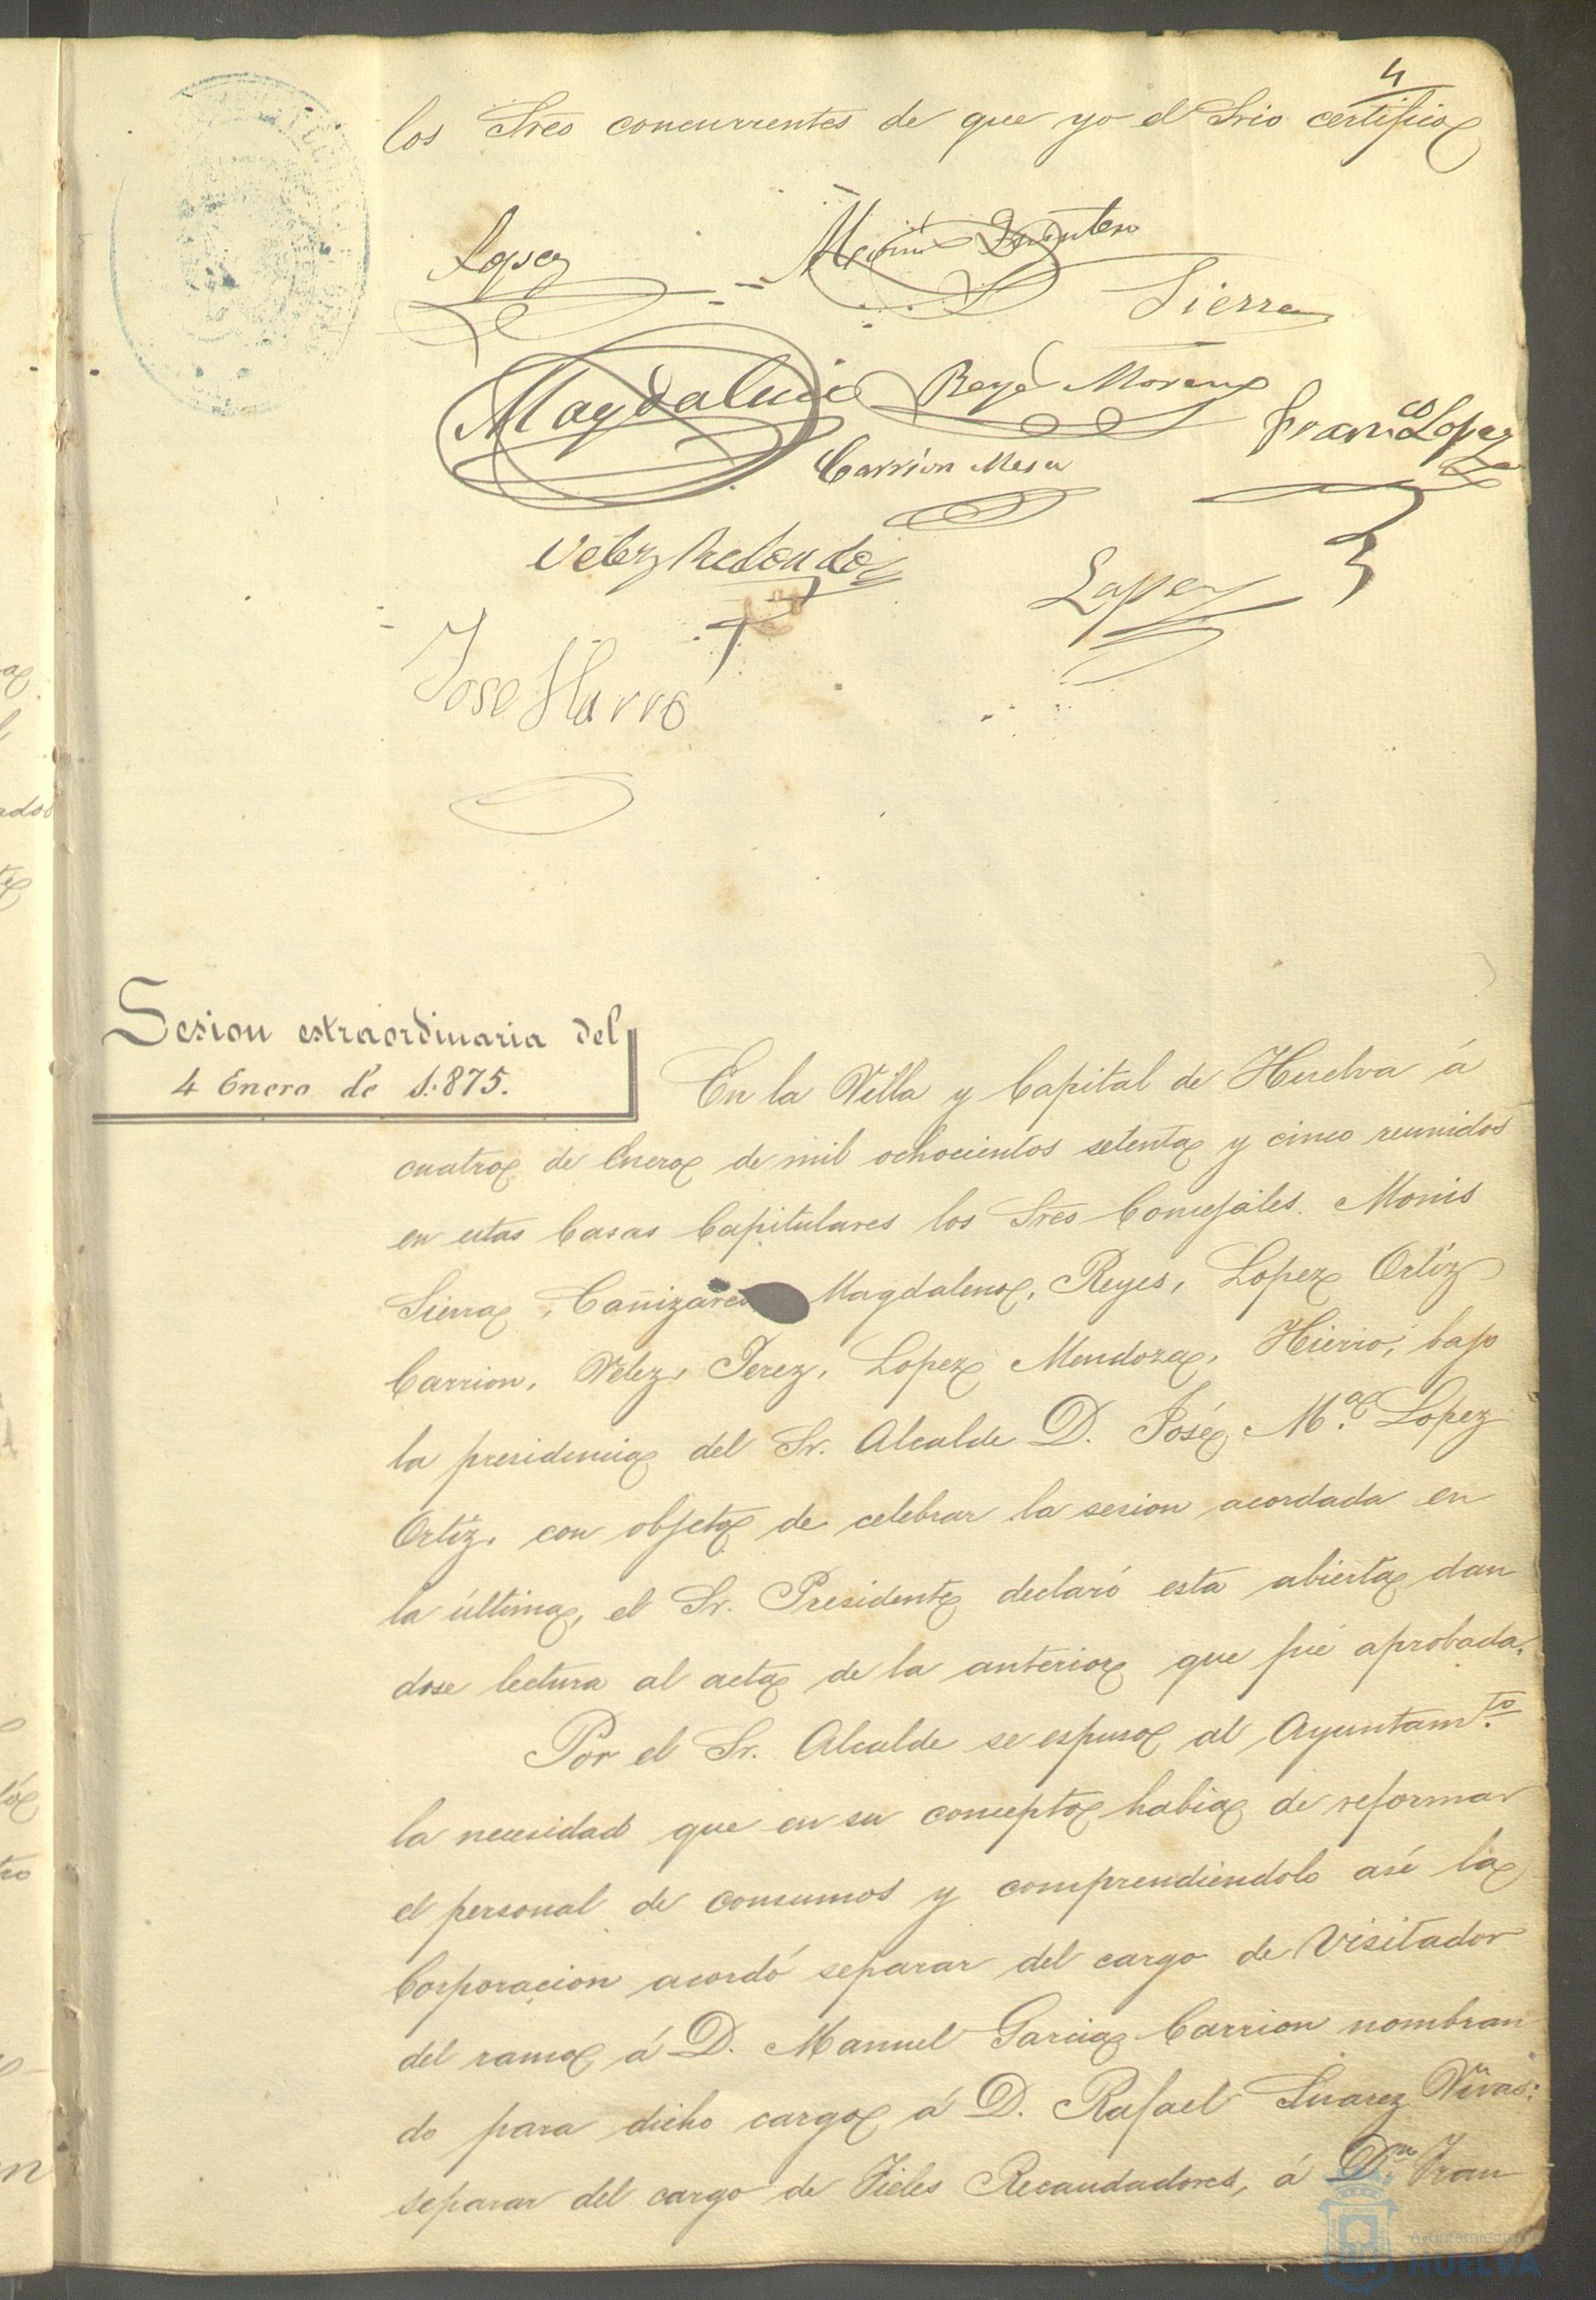 4
los Sres concurrentes de que yo el Srio certifico
Lopez
Quintero
Sierra
Magdaleno
Reyes Moreno
Fran.co Lopez
Carrion Mesa
Velez Redondo
Lopez
Jose Hierro
Sesion estraordinaria del
4 Enero de 1.875.
En la Villa y Capital de Huelva á
cuatro de Enero de mil ochocientos setenta y cinco reunidos
en estas Casas Capitulares los Sres Concejales. Monis
Sierra, Cañizares Magdaleno, Reyes, Lopez Ortiz
Carrion, Velez, Perez, Lopez Mendoza, Hierro, bajo
la presidencia del Sr. Alcalde D. José M.a Lopez
Ortiz, con objeto de celebrar la sesion acordada en
la última, el Sr. Presidente declaró esta abierta dan
dose lectura al acta de la anterior que fué aprobada.
Por el Sr. Alcalde se espuso al Ayuntam.to
la necesidad que en su concepto habia de reformar
el personal de consumos y comprendiendolo asi la
Corporacion acordó separar del cargo de Visitador
del ramo á D. Manuel Garcia Carrion nombran
do para dicho cargo á D. Rafael Suarez Vivas:
separar del cargo de Fieles Recaudadores, á D.n Fran
Ayuntamiento
HUELVA